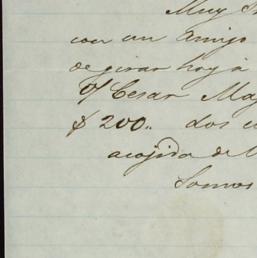 Muy S
con un amigo
de girar hoy á
o/ Cesar Ma
$ 200.. dos c
acojida de
Somos